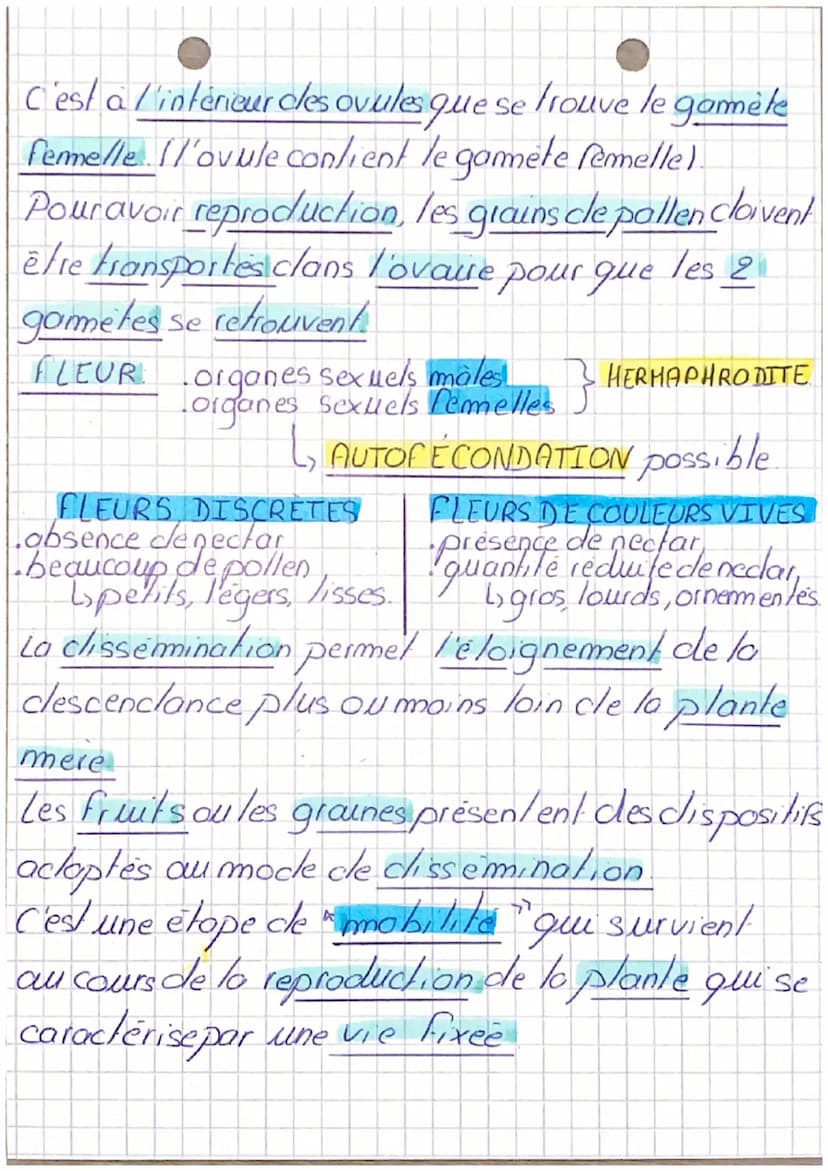 C'est à l'intérieur des ovules que se trouve le gamète
femelle. (l'ovule contient le gamète femelle).
Pour avoir reproduction, les grains de pollen doivent
être transportés dans l'ovaire pour que les 2
gamètes se retrouvent
FLEUR .organes sexuels mâles } HERMAPHRODITE
.organes sexuels femelles
↳ AUTOFÉCONDATION possible.
FLEURS DISCRÈTES
.absence de nectar
.beaucoup de pollen,
↳ petits, légers, lisses.
FLEURS DE COULEURS VIVES
.présence de nectar,
.quantité réduite de nectar,
↳ gros, lourds, ornementés.
La dissémination permet l'éloignement de la
descendance plus ou moins loin de la plante
mère
Les fruits ou les graines présentent des dispositifs
adaptés au mode de dissémination.
C'est une étape de "mobilité" qui survient
au cours de la reproduction de la plante qui se
caractérise par une vie fixée